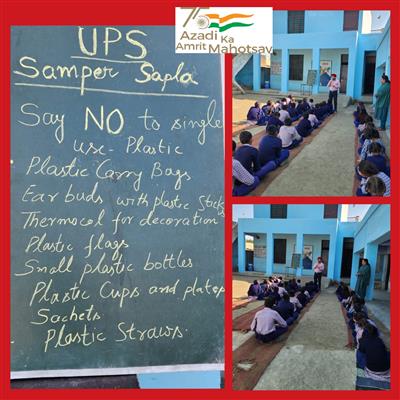 75
Azadi Ka
Amrit Mahotsav
UPS
Samper Sapla
Say NO to single
use- Plastic
Plastic Carry Bags
Ear buds with plastic sticks
Thermocol for decoration
Plastic flags
Small plastic bottles
Plastic Cups and plates
Sachets
Plastic Straws.